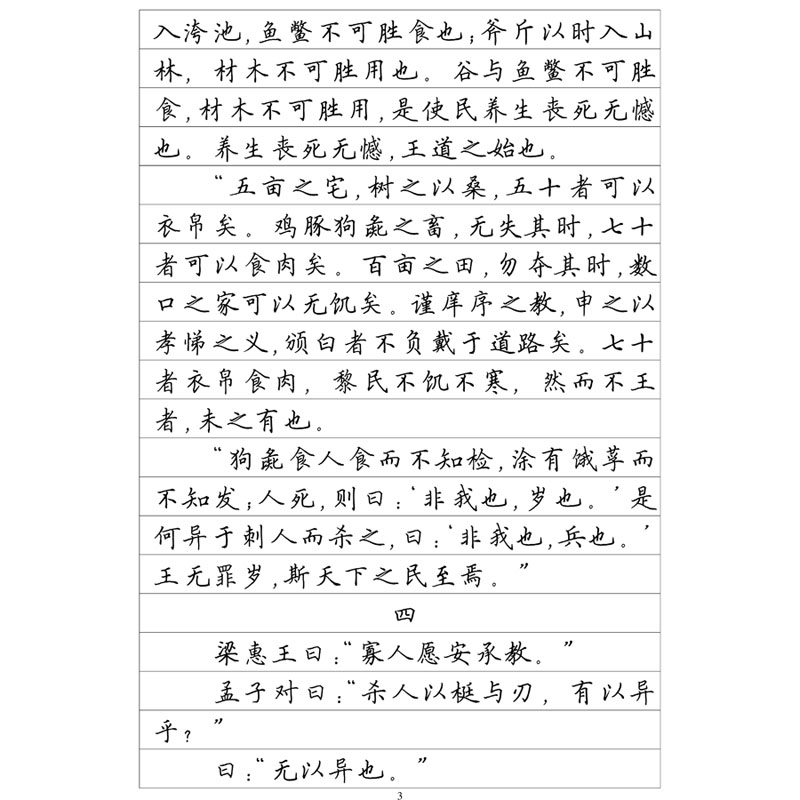 入洿池,鱼鳖不可胜食也;斧斤以时入山
林,材木不可胜用也。谷与鱼鳖不可胜
食,材木不可胜用,是使民养生丧死无憾
也。养生丧死无憾,王道之始也。
“五亩之宅,树之以桑,五十者可以
衣帛矣。鸡豚狗彘之畜,无失其时,七十
者可以食肉矣。百亩之田,勿夺其时,数
口之家可以无饥矣。谨庠序之教,申之以
孝悌之义,颁白者不负戴于道路矣。七十
者衣帛食肉,黎民不饥不寒,然而不王
者,未之有也。
“狗彘食人食而不知检,涂有饿莩而
不知发;人死,则曰:‘非我也,岁也。’是
何异于刺人而杀之,曰:‘非我也,兵也。’
王无罪岁,斯天下之民至焉。”
四
梁惠王曰:“寡人愿安承教。”
孟子对曰:“杀人以梃与刃,有以异
乎?”
曰:“无以异也。”
3